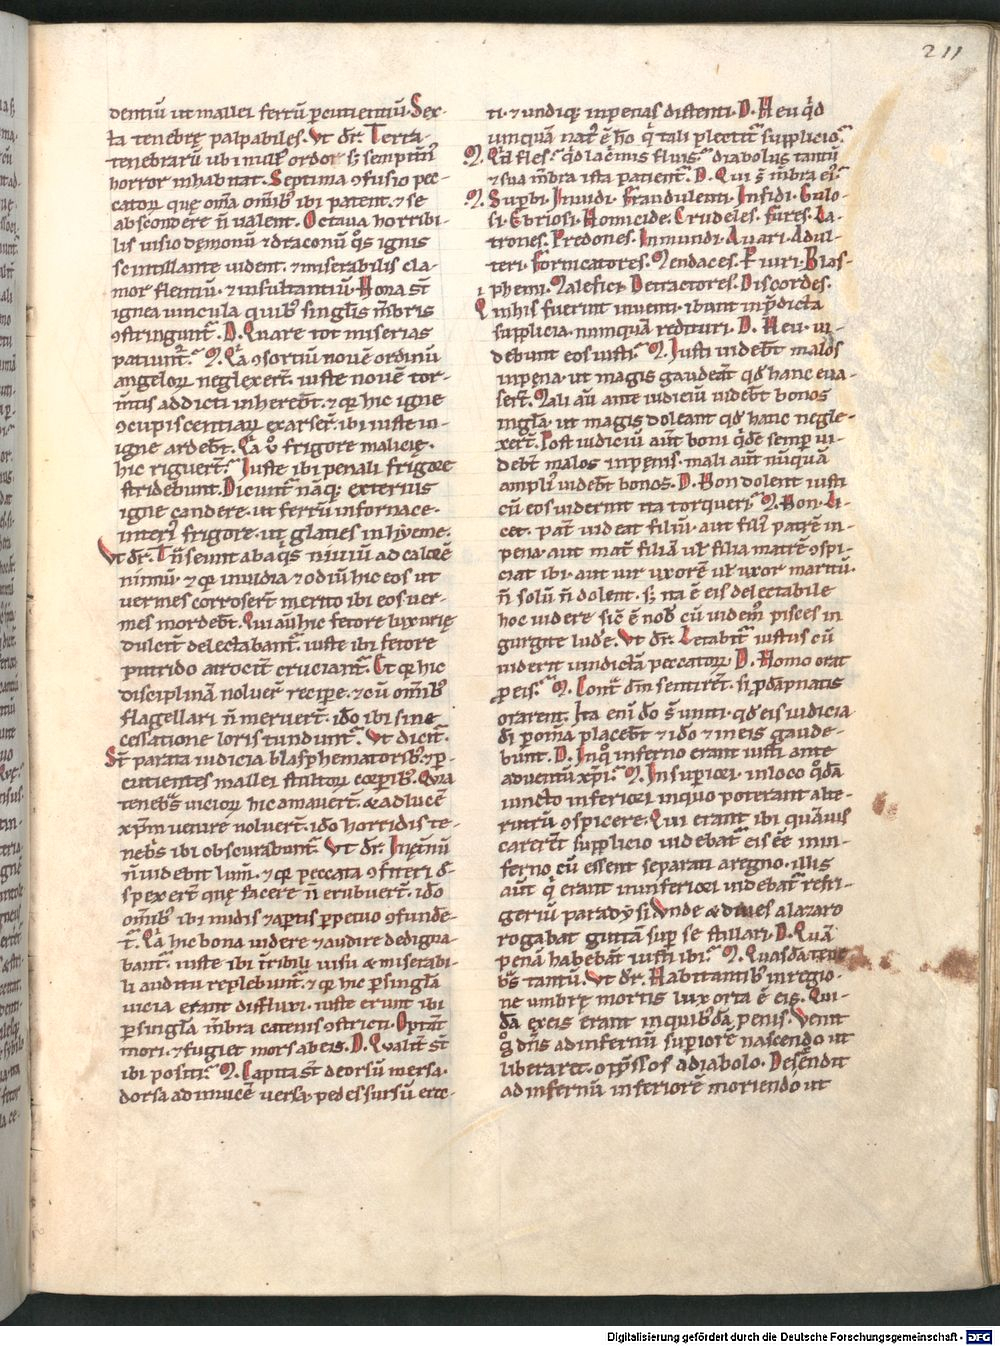 211
dentiū ut mallei ferrū ꝑcutientiū. Sex-
ta tenebrę palpabiles. Ut dr̄. Terra
tenebrarū ubi null' ordo s; sempitn̄'
horror inhabitat. Septima ꝯfusio pec-
catorꝝ quę om̄a om̄ib' ibi patent. ⁊ se
abscondere n̄ valent. Octava horribi-
lis visio dęmonū ⁊ draconū q̊s ignis
scintillante vident. ⁊ miserabilis cla-
mor flentiū. ⁊ insultantiū. Nona st̄
ignea vincula quib' singlīs m̄bris
ꝯstringunt̄. D. Quare tot miserias
patiunt̄. M. Qa ꝯsortiū novē ordinū
angelorꝝ neglexer̄t. iuste novē tor-
m̄tis addicti inhereb̄t. ⁊ qꝛ hic igne
ꝯcupiscentiarꝝ exarser̄t. ibi iuste in
igne ardeb̄t. Qa v̊ frigore malicię
hic riguer̄t. Iuste ibi penali frigore
stridebunt. Dicunt̄ nāq; exterius
igne candere. ut ferrū in fornace.
interi' frigore. ut glacies in hyeme.
Ut dr̄. Tn̄seunt ab aq̊s niviū ad calorē
nimiū. ⁊ qꝛ invidia ⁊ odiū hic eos ut
vermes corroser̄t merito ibi eos ver-
mes mordeb̄t. Qui aūt hic fetore luxurię
dulcit̄ delectabant̄. iuste ibi fetore
putrido atrocit̄ cruciant̄. Et qꝛ hic
disciplinā noluer̄ recipe. ⁊ cū om̄ib'
flagellari n̄ meruer̄t. iđo ibi sine
cessatione loris tundunt̄. Ut dicit̄.
St̄ parata iudicia blasphematorib' ⁊ ꝑ-
cutientes mallei stultorꝝ corꝑib'. Quia
tenebs̄ viciorꝝ hic amaver̄t. & ad lucē
xp̄m venire noluer̄t. iđo horridis te-
nebs̄ ibi obscurabunt̄. Ut dr̄. In ęt̄nū
n̄ videbt̄ lum̄. ⁊ qꝛ peccata ꝯfiteri đ-
spexer̄t quę facere n̄ erubuer̄t. iđo
om̄ib' ibi nudis ⁊ aꝑtis ꝑpetuo ꝯfundē-
t̄. Qa hic bona videre ⁊ audire dedigna-
bant̄. iuste ibi t̄ribili visu & miserabi-
li auditu replebunt̄. ⁊ qꝛ hic ꝑ singl̄a
vicia erant diffluxi. iuste erunt ibi
ꝑ singl̄a m̄bra catenis ꝯstricti. Optāt
mori. ⁊ fugiet mors ab eis. D. Qualit̄ st̄
ibi positi. M. Capita st̄ deorsū mersa.
dorsa ad invicē versa. pedes sursū erec-
ti. ⁊ undiq; in penas distenti. D. Heu q̊d
unquā nat' ē hō q̊ tali plectit̄ supplicio.
M. Qd fles. q̊d lac̄mis fluis. diabolus tantū
⁊ sua m̄bra ista patient̄. D. Qui s̄ m̄bra ei'.
M. Suꝑbi. Invidi. Fraudulenti. Infidi. Gulo-
si. Ebriosi. Homicide. Crudeles. Fures. La-
trones. Predones. Inmundi. Avari. Adul-
teri. Fornicatores. Mendaces. Piuri. Blas-
phemi. Malefici. Detractores. Discordes.
Qui in his fuerint inventi. ibunt in p̄dicta
supplicia. nunquā redituri. D. Heu vi-
debunt eos iusti. M. Iusti videb̄t malos
in pęna. ut magis gaudeāt qđ hanc eva-
ser̄t. Mali aūt ante iudiciū videb̄t bonos
in gl̄a. ut magis doleant qđ hanc negle-
xer̄t. Post iudiciū aūt boni q̊de semꝑ vi-
deb̄t malos in penis. mali aūt nūquā
ampli' videb̄t bonos. D. Non dolent iusti
cū eos viderint ita torqueri. M. Non. Li-
cet. pat̄ videat filiū. aut fili' patrē in
pena. aut mat̄ filiā vł filia matrē ꝯspi-
ciat ibi. aut vir uxorē vł uxor maritū.
n̄ solū n̄ dolent. s; ita ē eis delectabile
hoc videre sic̄ ē nob' cū videm' pisces in
gurgite lude. Ut dr̄. Letabit̄ iustus cū
viderit vindictā peccatorꝝ. D. Homo orat
ꝓ eis. M. Cont̄ dm̄ sentirēt. si ꝓ dāpnatis
orarent. Ita eni đo s̄ uniti. qđ eis iudicia
đi ꝑ om̄a placeb̄t ⁊ iđo ⁊ in eis gaude-
bunt. D. In q̊ inferno erant iusti ante
adventū xp̄i. M. In superiori. in loco q̊dā
iuncto inferiori in quo poterant alte-
rutrū ꝯspicere. Qui erant ibi quāvis
carer̄t supplicio videbat̄ eis ēē in in-
ferno cū essent separati a regno. illis
aūt q̊ erant in inferiori videbat̄ refri-
geriū paradysi. Unde & dives a lazaro
rogabat guttā suꝑ se stillari. D. Quā
penā habebāt iusti ibi. M. Quasdā tene
bs̄ tantū. Ut dr̄. Habitantib' in regio-
ne umbrę mortis lux orta ē eis. Qui-
dā ex eis erant in quib'dā penis. Venit
g̊ dn̄s ad infernū superiorē nascendo ut
liberaret. opp̄ssos a diabolo. Descendit
ad infernū inferiorē moriendo ut
Digitalisierung gefördert durch die Deutsche Forschungsgemeinschaft - DFG